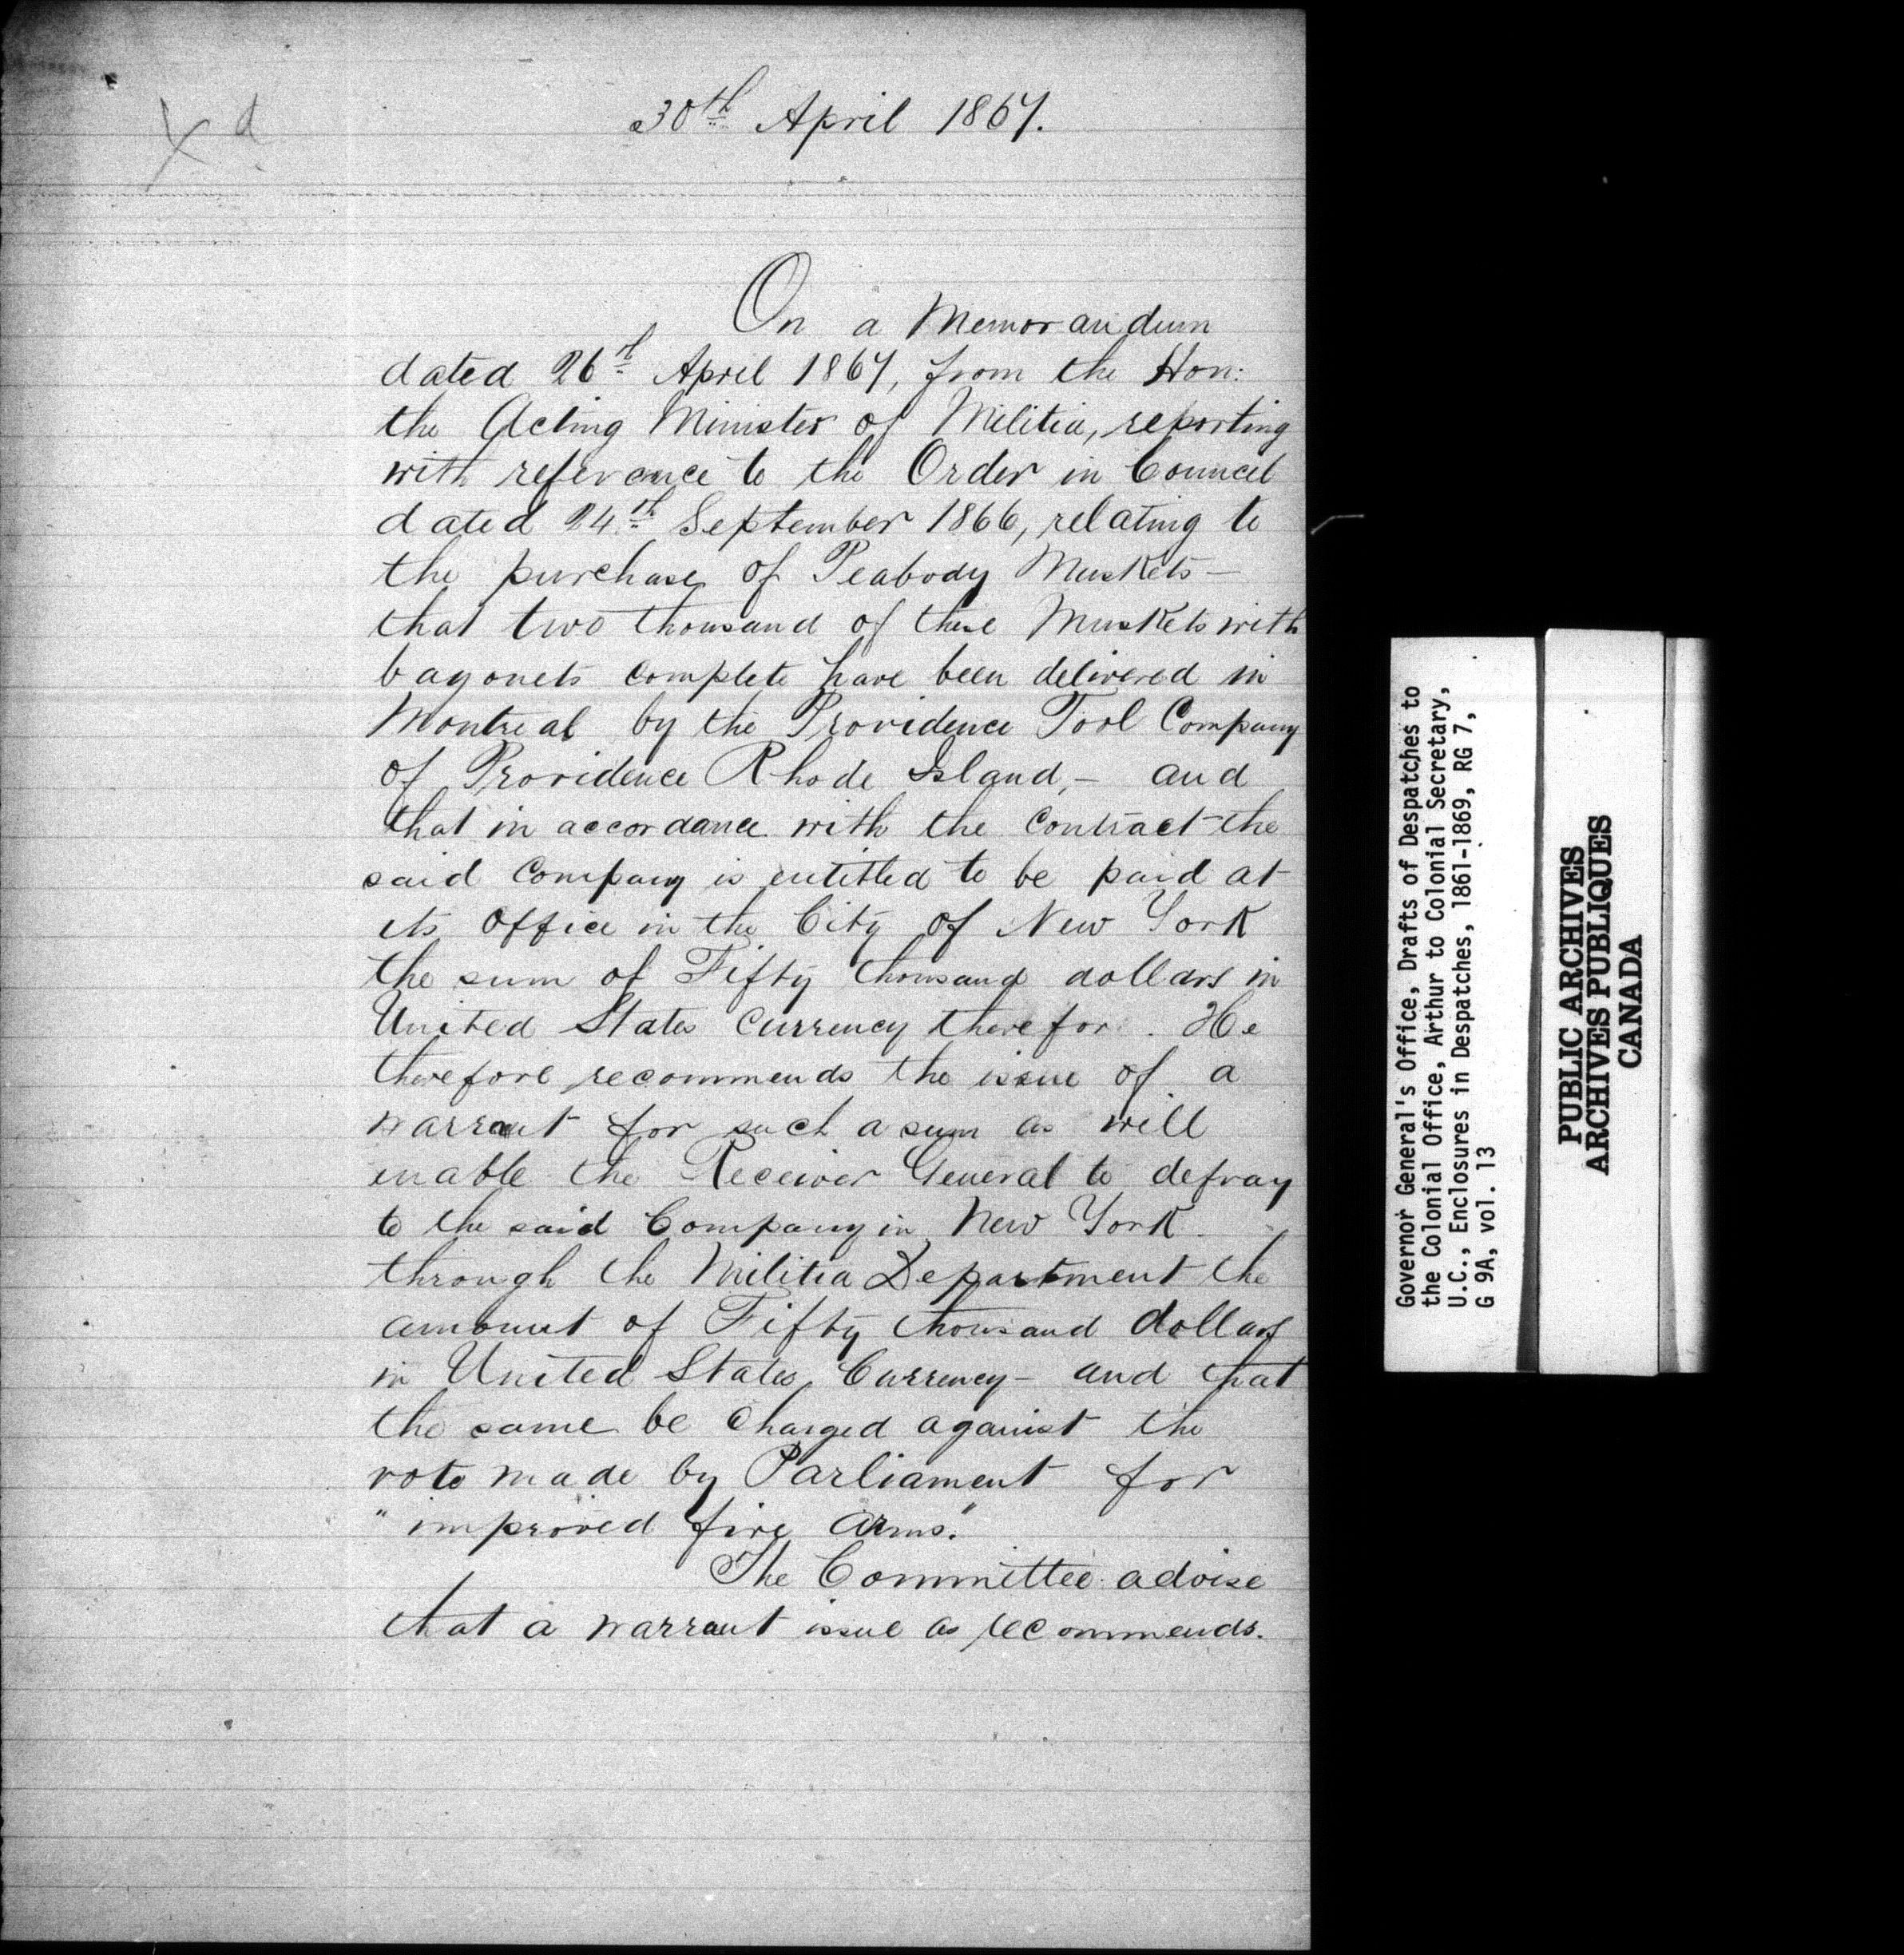 X d
30th April 1867.
On a Memorandum
dated 26th April 1867, from the Hon:
the Acting Minister of Militia, reporting
with reference to the Order in Council
dated 24th September 1866, relating to
the purchase of Peabody Muskets—
that two thousand of these Muskets with
bayonets complete have been delivered in
Montreal by the Providence Tool Company
of Providence Rhode Island,— and
that in accordance with the Contract the
said Company is entitled to be paid at
its Office in the City of New York
the sum of Fifty thousand dollars in
United States Currency therefor. He
therefore recommends the issue of a
warrant for such a sum as will
enable the Receiver General to defray
to the said Company in New York
through the Militia Department the
amount of Fifty thousand dollars
in United States Currency— and that
the same be charged against the
vote made by Parliament for
"improved fire arms."
The Committee advise
that a warrant issue as recommends.
Governor General's Office, Drafts of Despatches to
the Colonial Office, Arthur to Colonial Secretary,
U.C., Enclosures in Despatches, 1861-1869, RG 7,
G 9A, vol. 13
PUBLIC ARCHIVES
ARCHIVES PUBLIQUES
CANADA